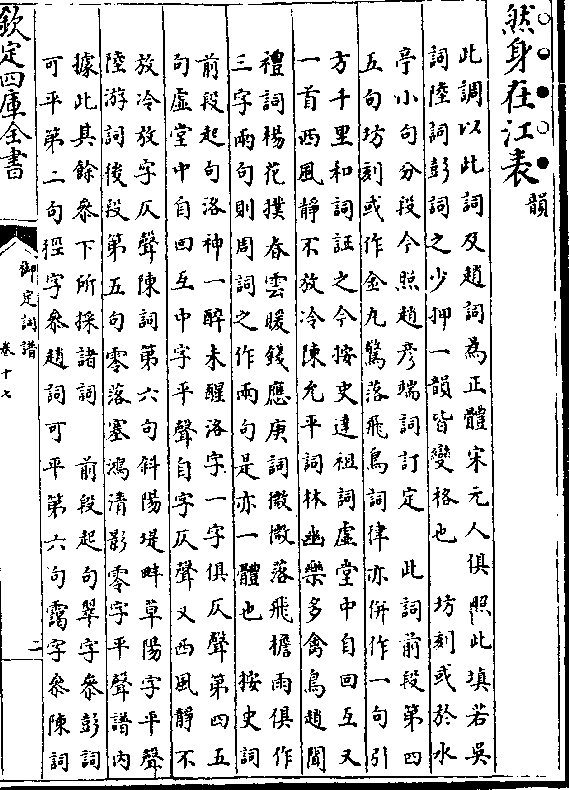 然身在江表韻
此調以此詞及趙詞為正體宋元人俱照此填若吳
詞陸詞彭詞之少押一韻皆變格也　坊刻或於水
亭小句分段今照趙彥端詞訂定　此詞前段第四
五句坊刻或作金丸驚落飛鳥詞律亦併作一句引
方千里和詞註之今按史達祖詞虛堂中自回互又
一首西風靜不放冷陳允平詞林幽樂多禽鳥趙聞
禮詞楊花撲春雲暖錢應庚詞微微落飛檐雨俱作
三字兩句則周詞之作兩句是亦一體也　按史詞
前段起句洛神一醉未醒洛字一字俱仄聲第四五
句虛堂中自回互中字平聲自字仄聲又西風靜不
放冷放字仄聲陳詞第六句斜陽堤畔草陽字平聲
陸游詞後段第五句零落塞鴻清影零字平聲譜內
據此其餘參下所採諸詞　前段起句翠字參彭詞
可平第二句徑字參趙詞可平第六句靄字參陳詞
欽定四庫全書
御定詞譜
卷十七
二